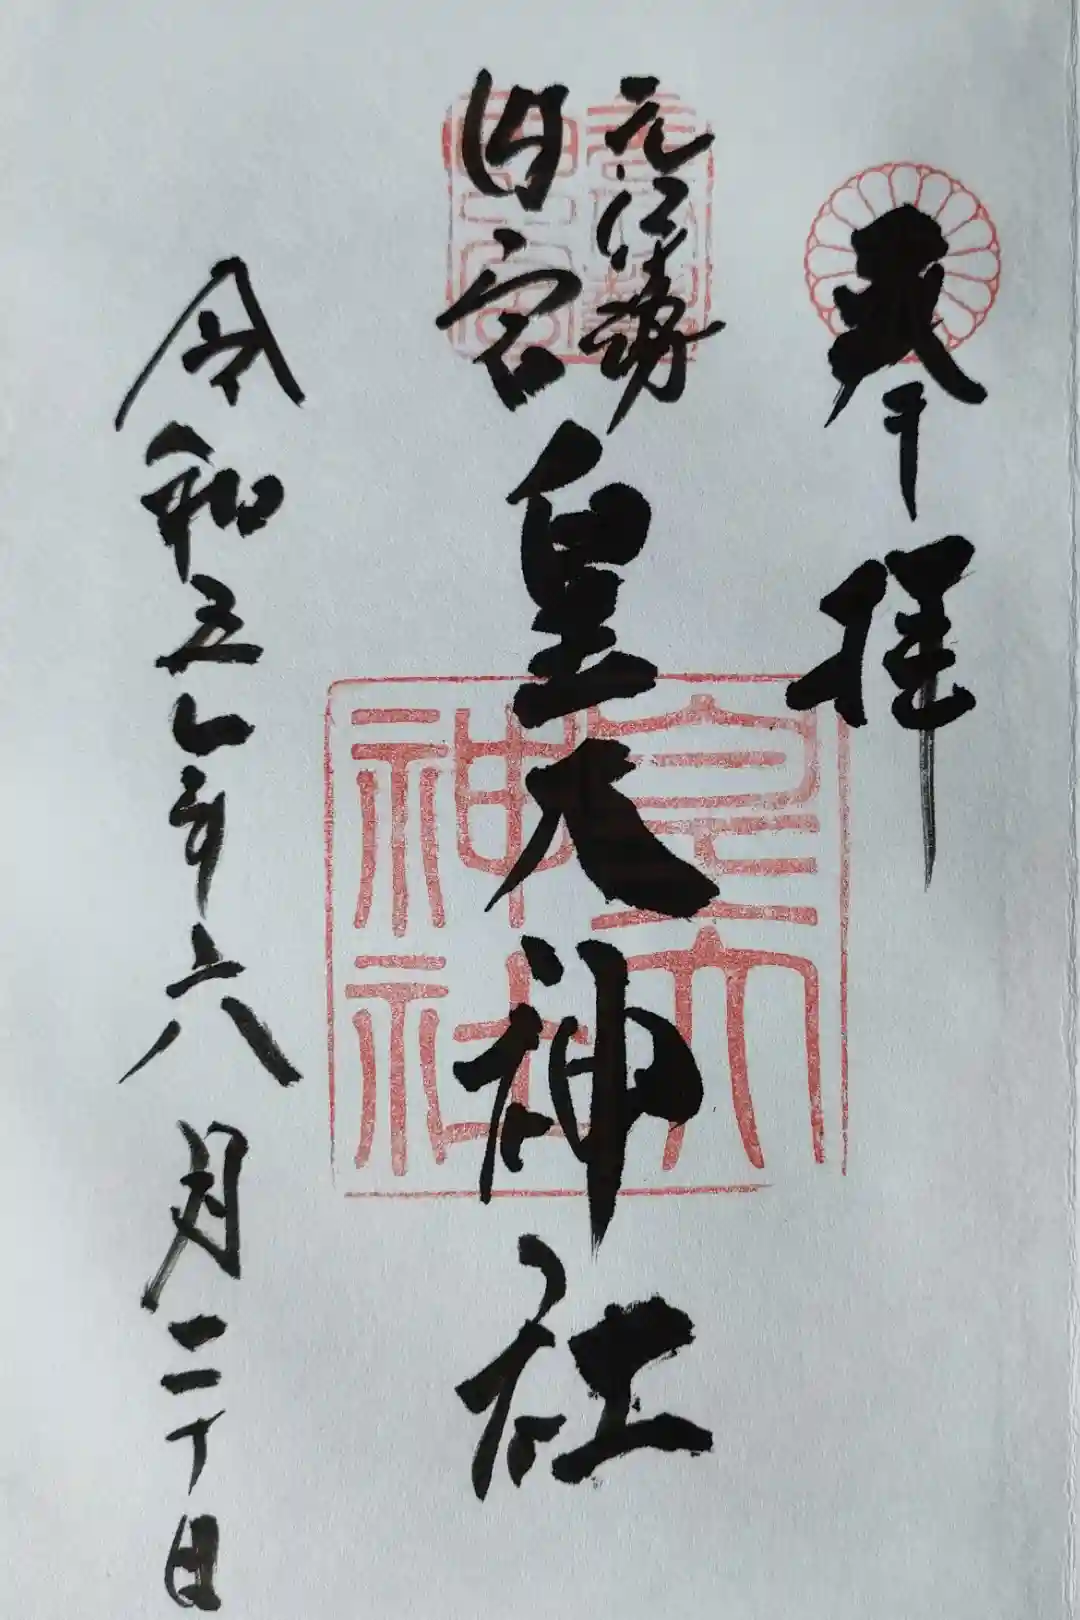 奉拝
元伊勢
内宮
皇大神社
皇大
神社
令和五年六月二十日